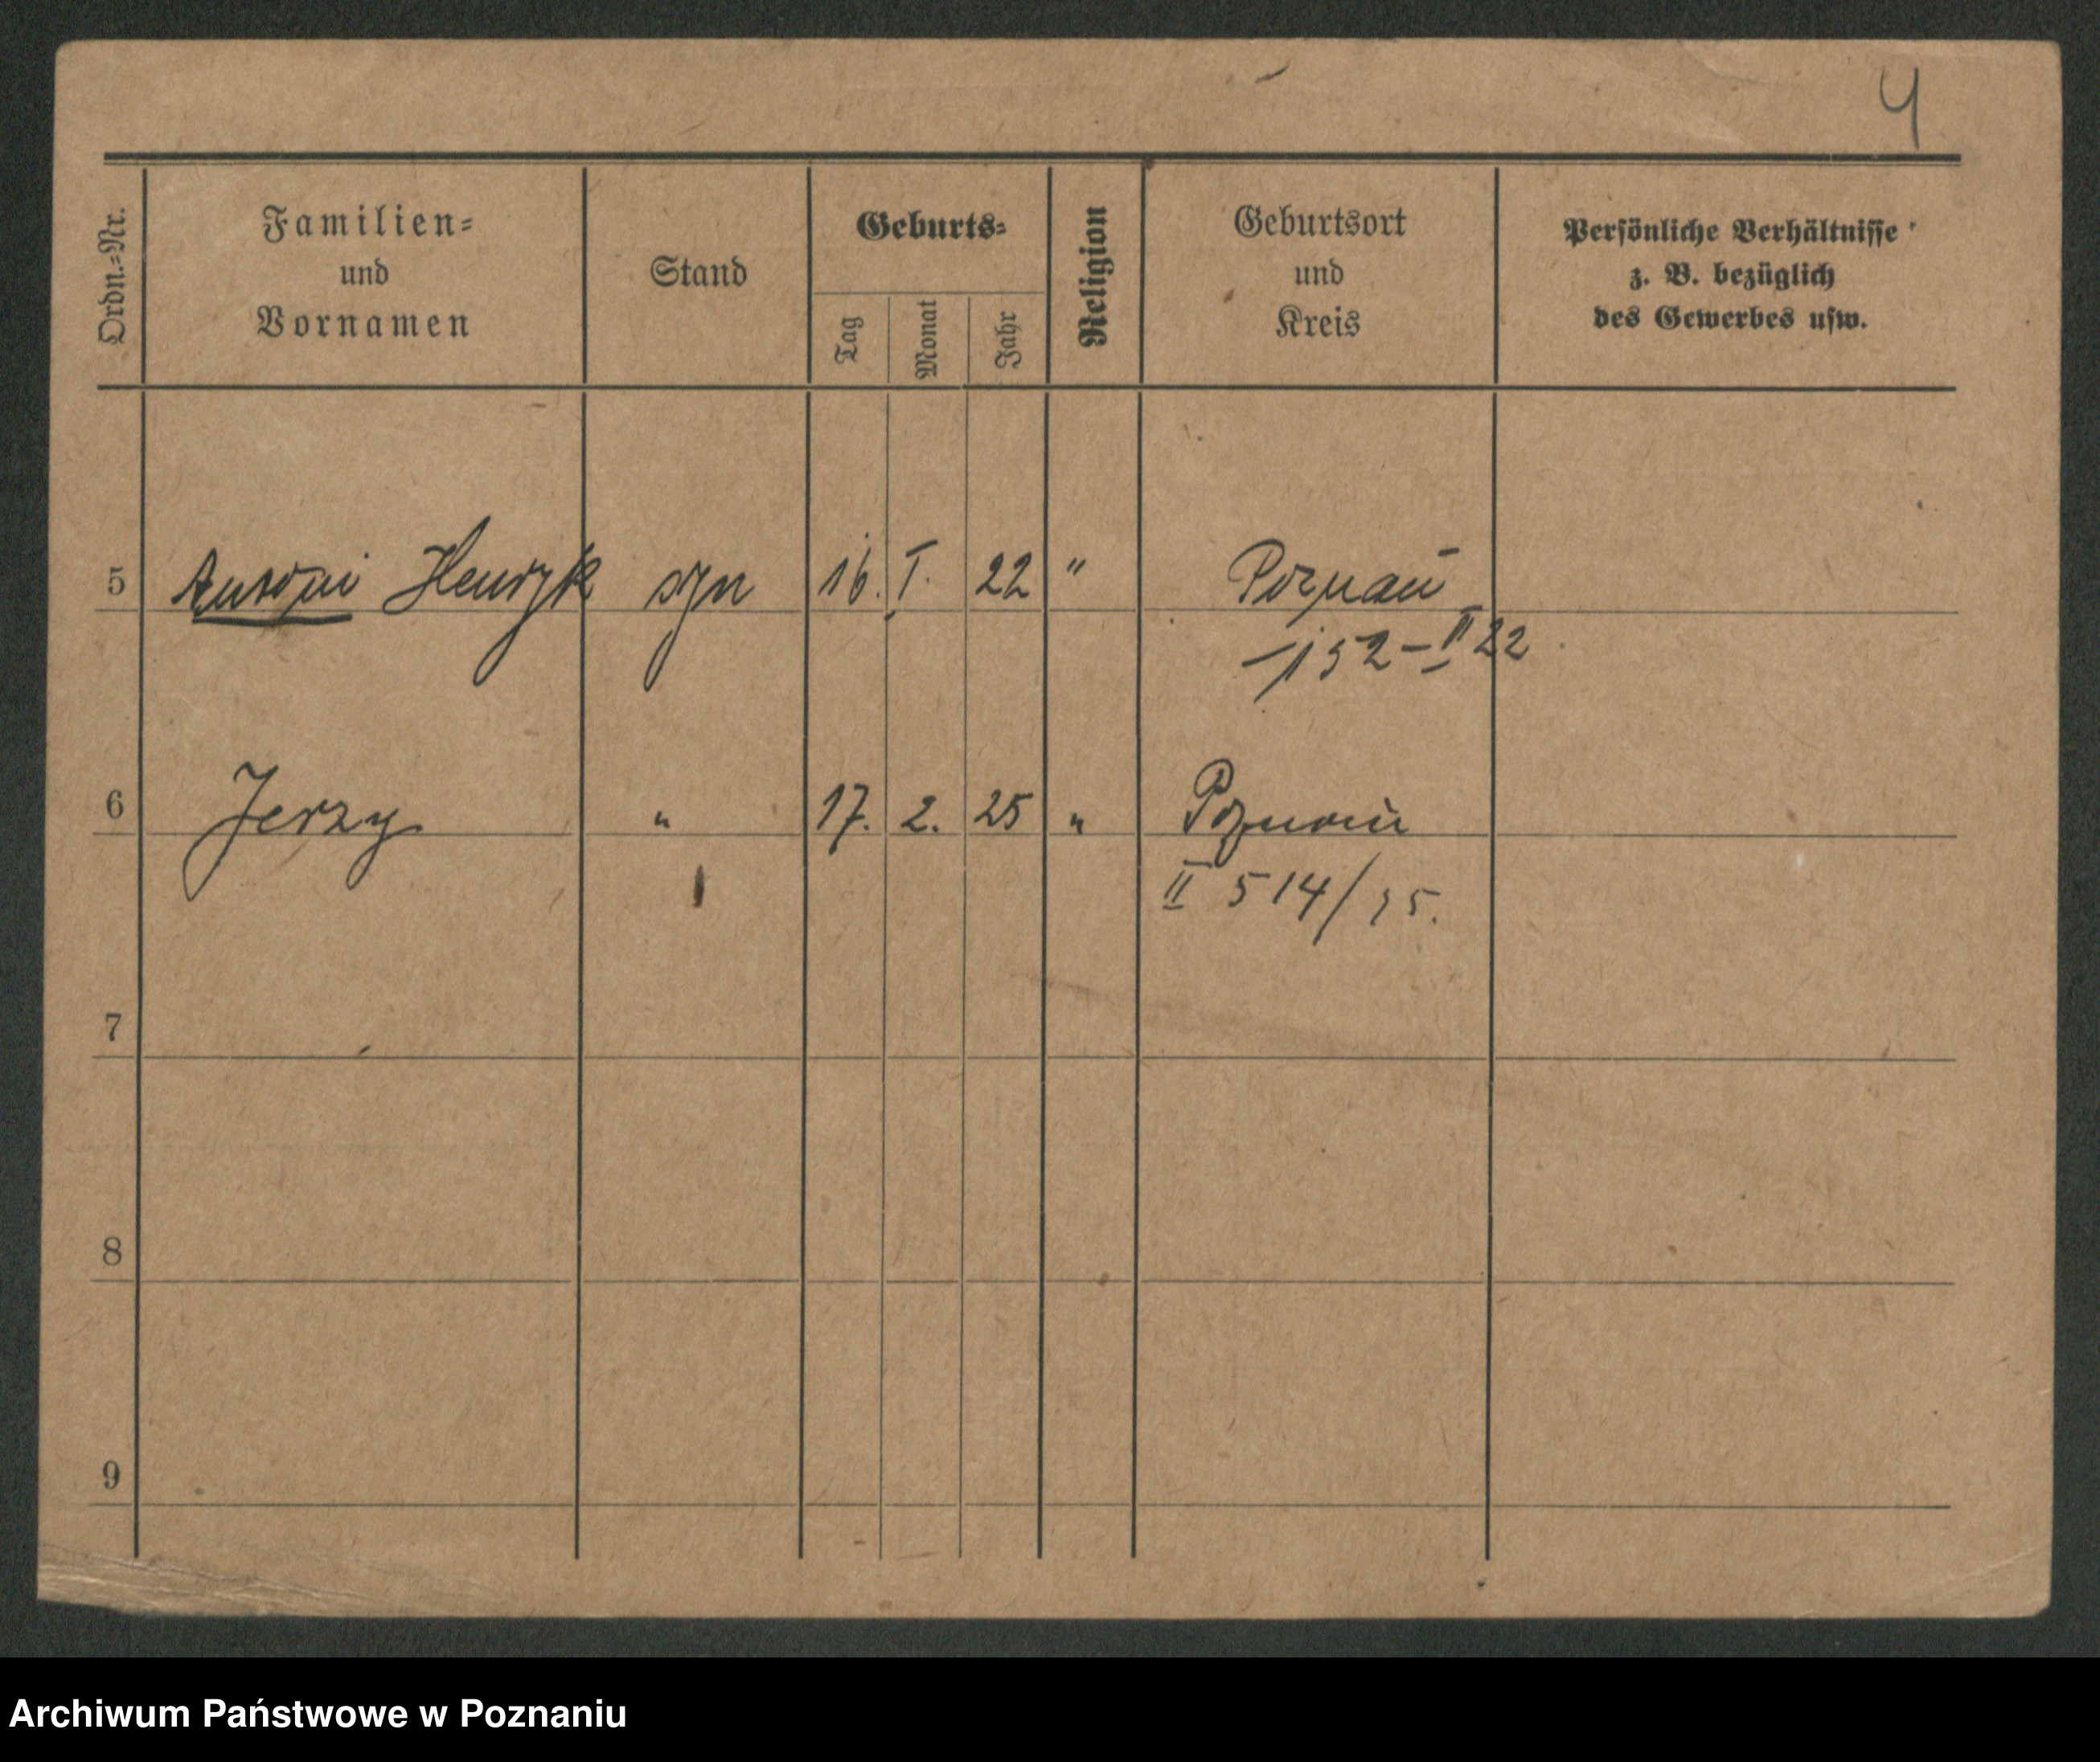 4
Ordn.=Nr.
Familien=
und
Vornamen
Stand
Geburts=
Tag
Monat
Jahr
Religion
Geburtsort
und
Kreis
Persönliche Verhältnisse
z. B. bezüglich
des Gewerbes usw.
5 Antoni Henryk syn 16. I. 22 " Poznań
152-II 22
6 Jerzy " 17. 2. 25 " Poznań
II 514/25.
7
8
9
Archiwum Państwowe w Poznaniu